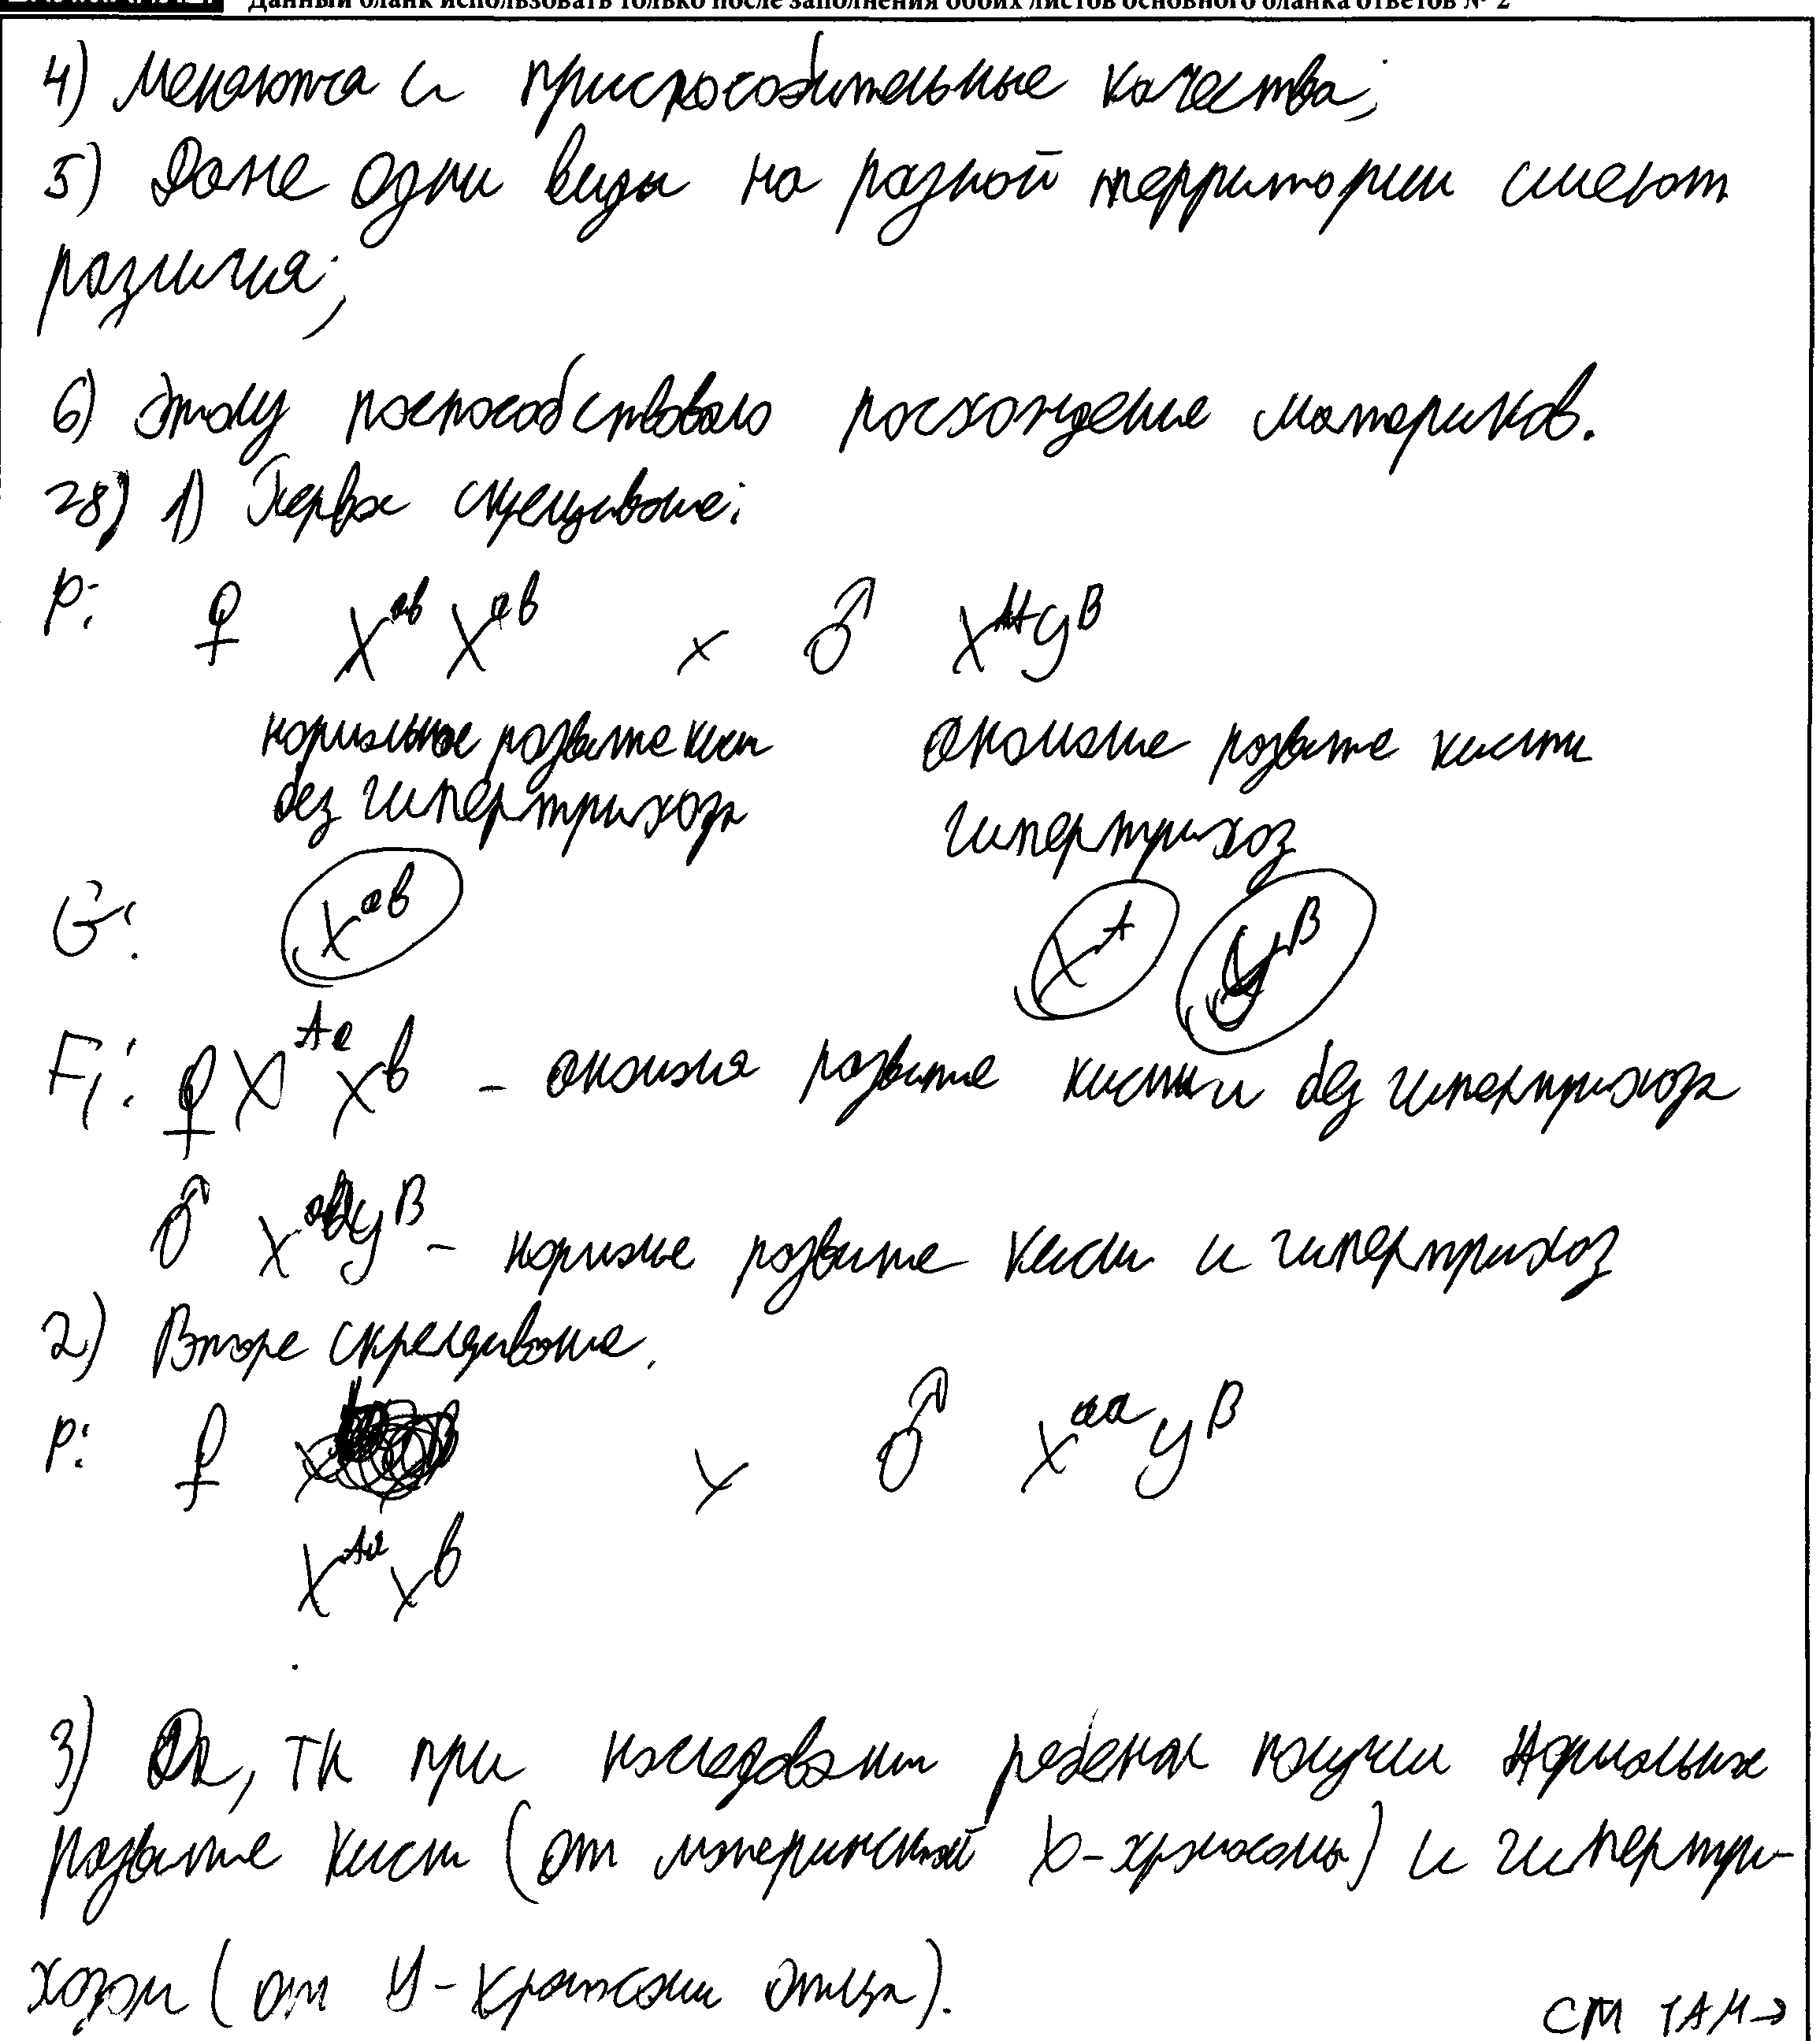 Данный бланк использовать только после заполнения обоих листов основного бланка ответов № 2
4) Меняются и приспособительные качества;
5) Даже одни виды на разной территории имеют
различия;
6) Этому поспособствовало расхождение материков.
28) 1) Первое скрещивание:
P: ♀ X^ab X^ab x ♂ X^A y^B
нормальное развитие кисти аномалие развитие кисти
без гипертрихоза гипертрихоз
G: X^ab X^A y^B
F1: ♀ X^Aa X^b – аномалия развитие кисти и без гипертрихоза
♂ y^B – нормальное развитие кисти и гипертрихоз
2) Второе скрещивание.
P: ♀ x ♂ X^aa y^B
X^Aa X^b
3) Да, тк при наследовании ребенок получил нормальное
развитие кисти (от материнской X-хромосомы) и гипертри-
хозом (от У-хромосомы отца).
СМ ТАМ→